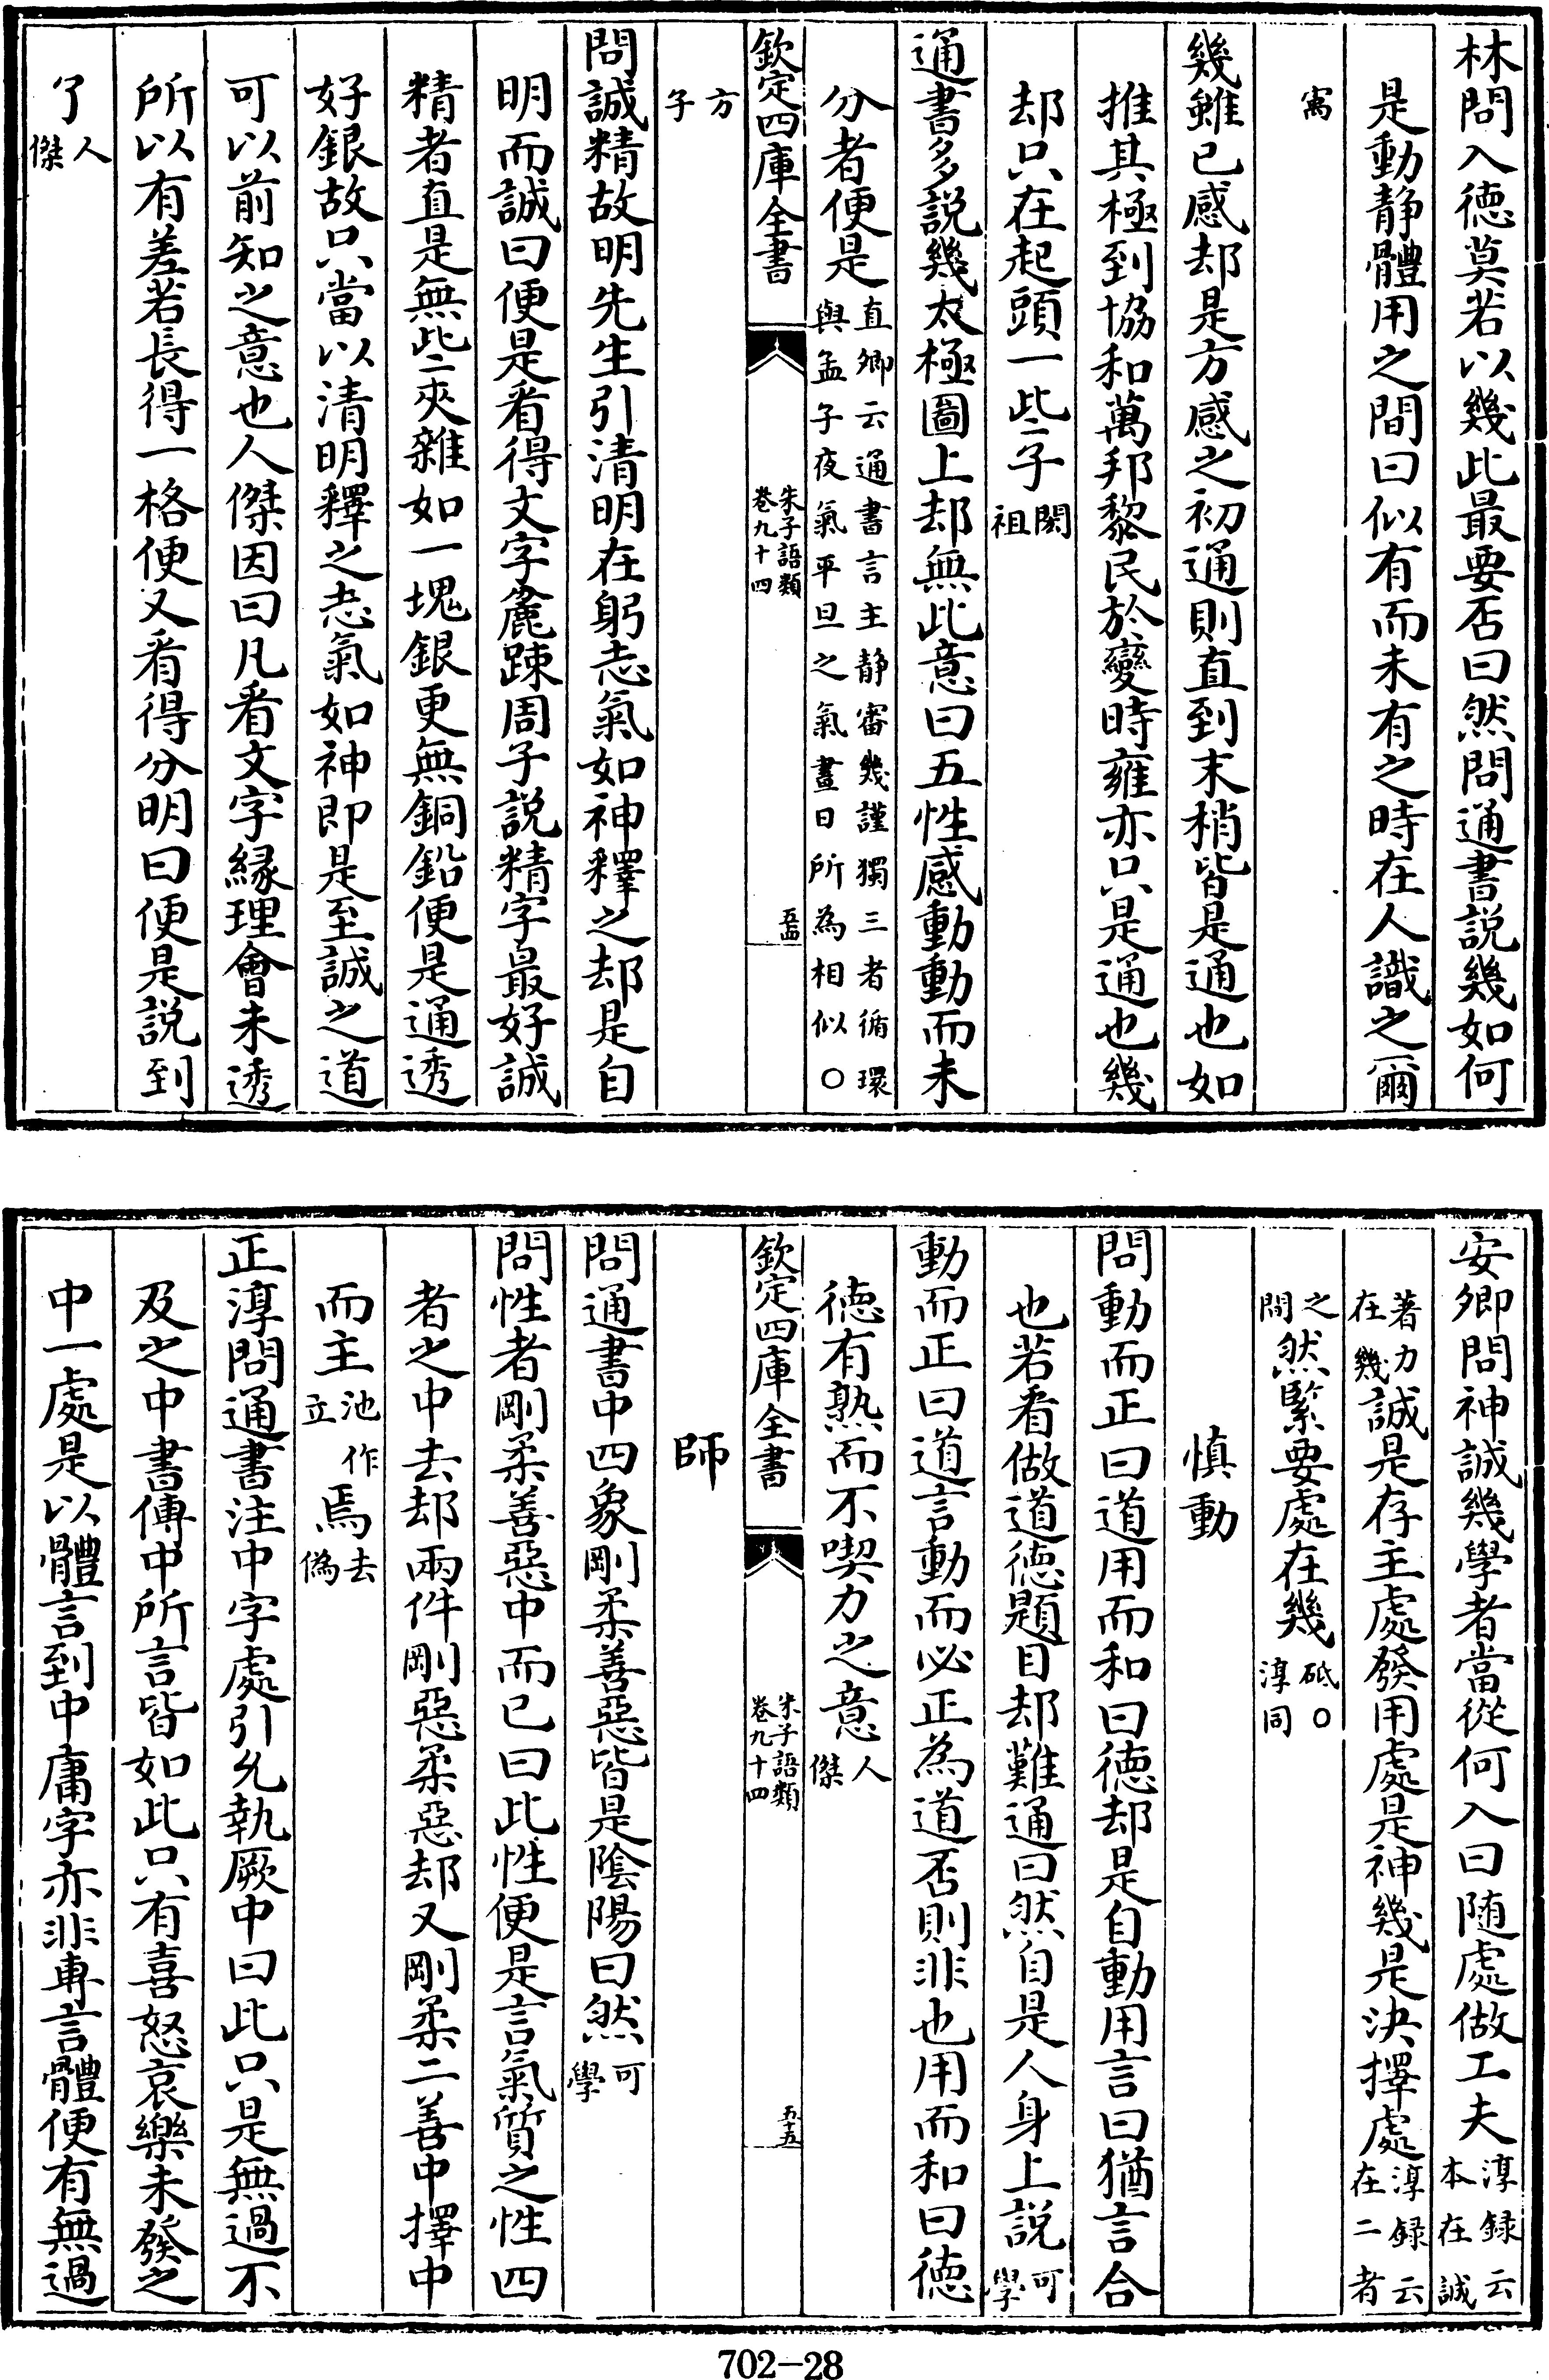 林問入德莫若以幾此最要否曰然問通書説幾如何
是動静體用之間曰似有而未有之時在人識之爾
㝢
幾雖已感却是方感之初通則直到末稍皆是通也如
推其極到協和萬邦黎民於變時雍亦只是通也幾
却只在起頭一些子閎祖
通書多説幾太極圖上却無此意曰五性感動動而未
分者便是直卿云通書言主静審幾謹獨三者循環與孟子夜氣平旦之氣晝日所為相似○
欽定四庫全書
朱子語類
卷九十四
五十四
方子
問誠精故明先生引清明在躬志氣如神釋之却是自
明而誠曰便是看得文字麄踈周子説精字最好誠
精者直是無些夾雜如一塊銀更無銅鉛便是通透
好銀故只當以清明釋之志氣如神即是至誠之道
可以前知之意也人傑因曰凡看文字縁理會未透
所以有差若長得一格便又看得分明曰便是説到
了人傑
安卿問神誠幾學者當從何入曰随處做工夫淳録云本在誠
著力在幾誠是存主處發用處是神幾是決擇處淳録云在二者
之間然緊要處在幾砥○淳同
慎動
問動而正曰道用而和曰德却是自動用言曰猶言合
也若看做道德題目却難通曰然自是人身上説可學
動而正曰道言動而必正為道否則非也用而和曰德
德有熟而不喫力之意人傑
欽定四庫全書
朱子語類
卷九十四
五十五
師
問通書中四象剛柔善惡皆是陰陽曰然可學
問性者剛柔善惡中而已曰此性便是言氣質之性四
者之中去却兩件剛惡柔惡却又剛柔二善中擇中
而主池作立焉去偽
正淳問通書注中字處引允執厥中曰此只是無過不
及之中書傳中所言皆如此只有喜怒哀樂未發之
中一處是以體言到中庸字亦非專言體便有無過
702-28